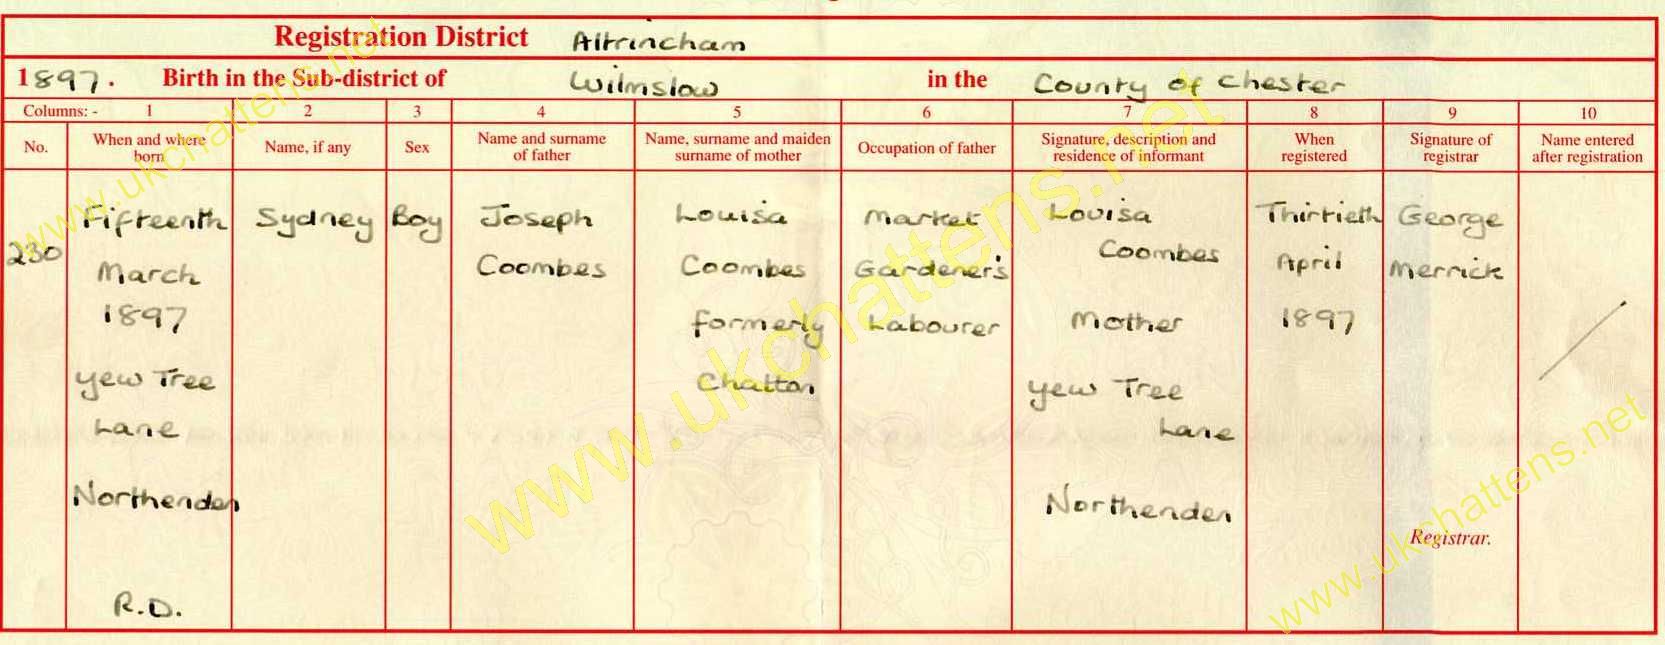 Registration District Altrincham
1897. Birth in the Sub-district of Wilmslow in the County of Chester
Columns: - 1 2 3 4 5 6 7 8 9 10
No. When and where born Name, if any Sex Name and surname of father Name, surname and maiden surname of mother Occupation of father Signature, description and residence of informant When registered Signature of registrar Name entered after registration
230
Fifteenth
March
1897
Yew Tree
Lane
Northenden
R.D.
Sydney
Boy
Joseph
Coombes
Louisa
Coombes
formerly
Chatton
Market
Gardener's
Labourer
Louisa
Coombes
Mother
Yew Tree
Lane
Northenden
Thirtieth
April
1897
George
Merrick
Registrar.
www.ukchattens.net
www.ukchattens.net
www.ukchattens.net